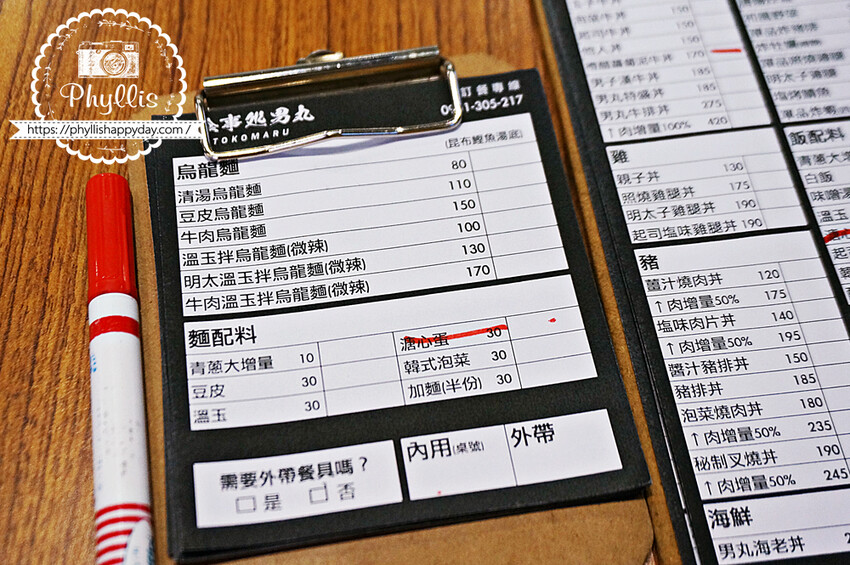 Phyllis
https://phyllishappyday.com/
男丸
TOKOMARU
訂餐專線
305-217
烏龍麵 (昆布鰹魚湯底)
清湯烏龍麵 80
豆皮烏龍麵 110
牛肉烏龍麵 150
溫玉拌烏龍麵(微辣) 100
明太溫玉拌烏龍麵(微辣) 130
牛肉溫玉拌烏龍麵(微辣) 170
麵配料
青蔥大增量 10
豆皮 30
溫玉 30
溏心蛋 30
韓式泡菜 30
加麵(半份) 30
需要外帶餐具嗎？
□是 □否
內用(桌號)
外帶
170
男子漢牛丼 185
男丸特盛丼 185
男丸牛排丼 275
↑肉增量100% 420
雞
親子丼 130
照燒雞腿丼 175
明太子雞腿丼 190
起司塩味雞腿丼 190
豬
薑汁燒肉丼 120
↑肉增量50% 175
塩味肉片丼 140
↑肉增量50% 195
醬汁豬丼 150
豬排丼 185
泡菜燒肉丼 180
↑肉增量50% 235
秘制叉燒丼 190
↑肉增量50% 245
海鮮
男丸海老丼
飯配料
青蔥大
白飯
味噌湯
溫玉